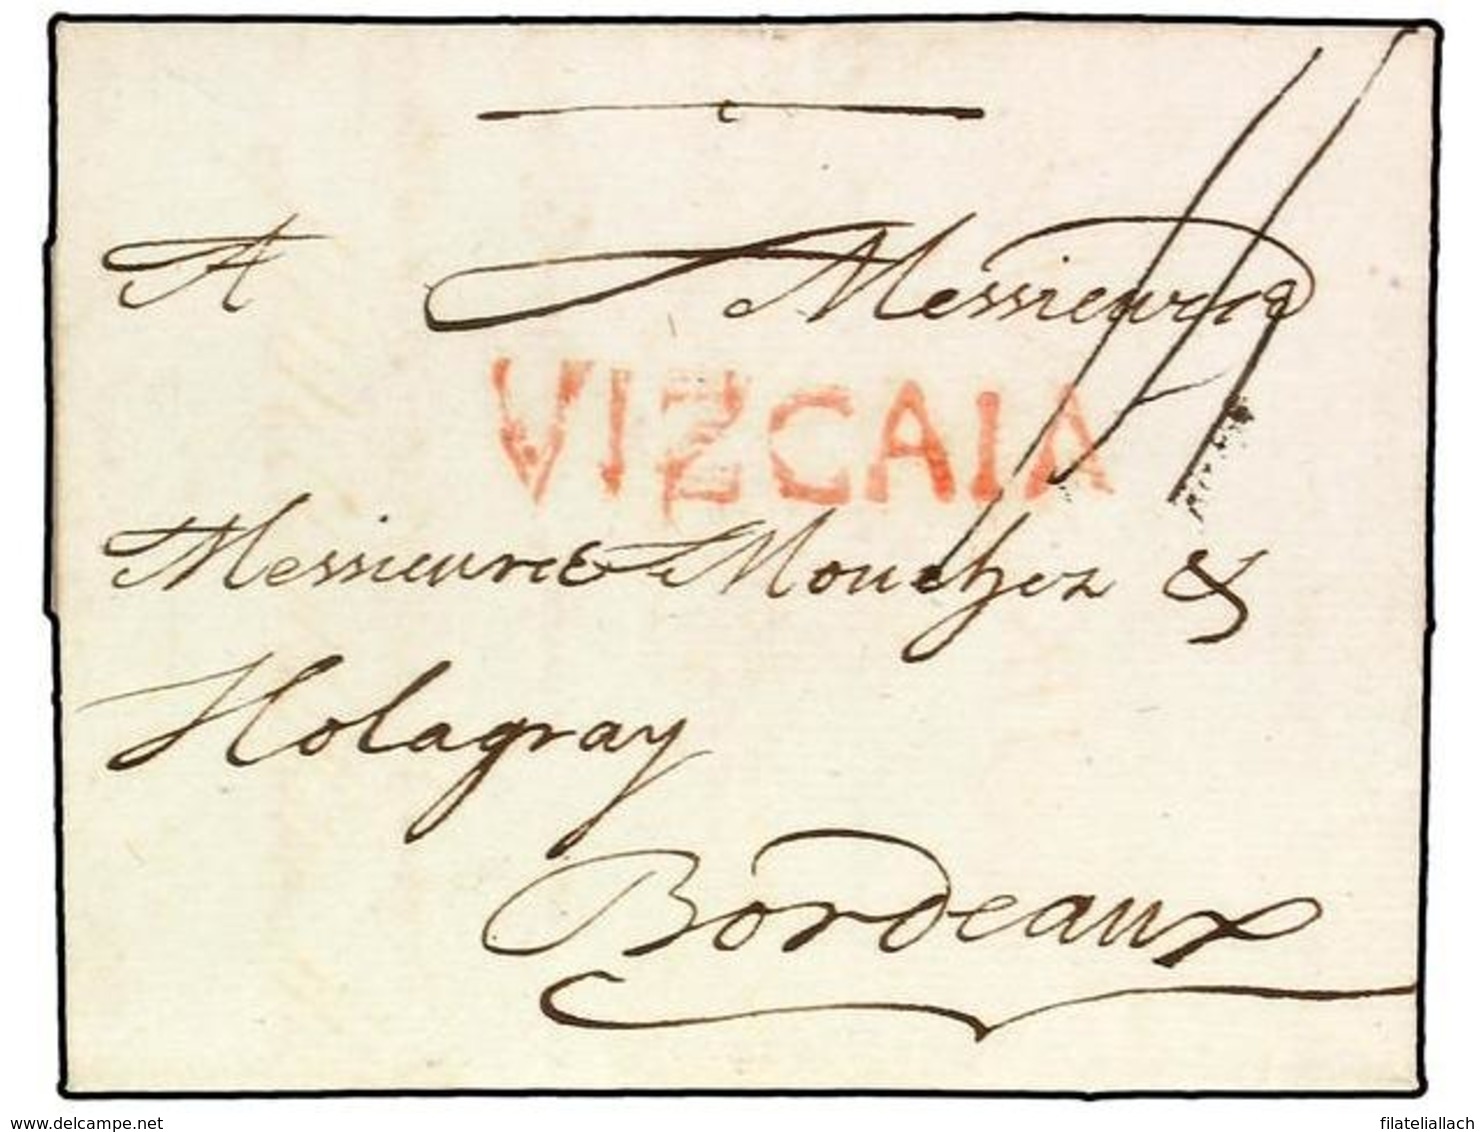 A Messieurs
VIZCAIA
Messieurs Mouchez &
Holagray
Bordeaux
www.delcampe.net
filateliallach